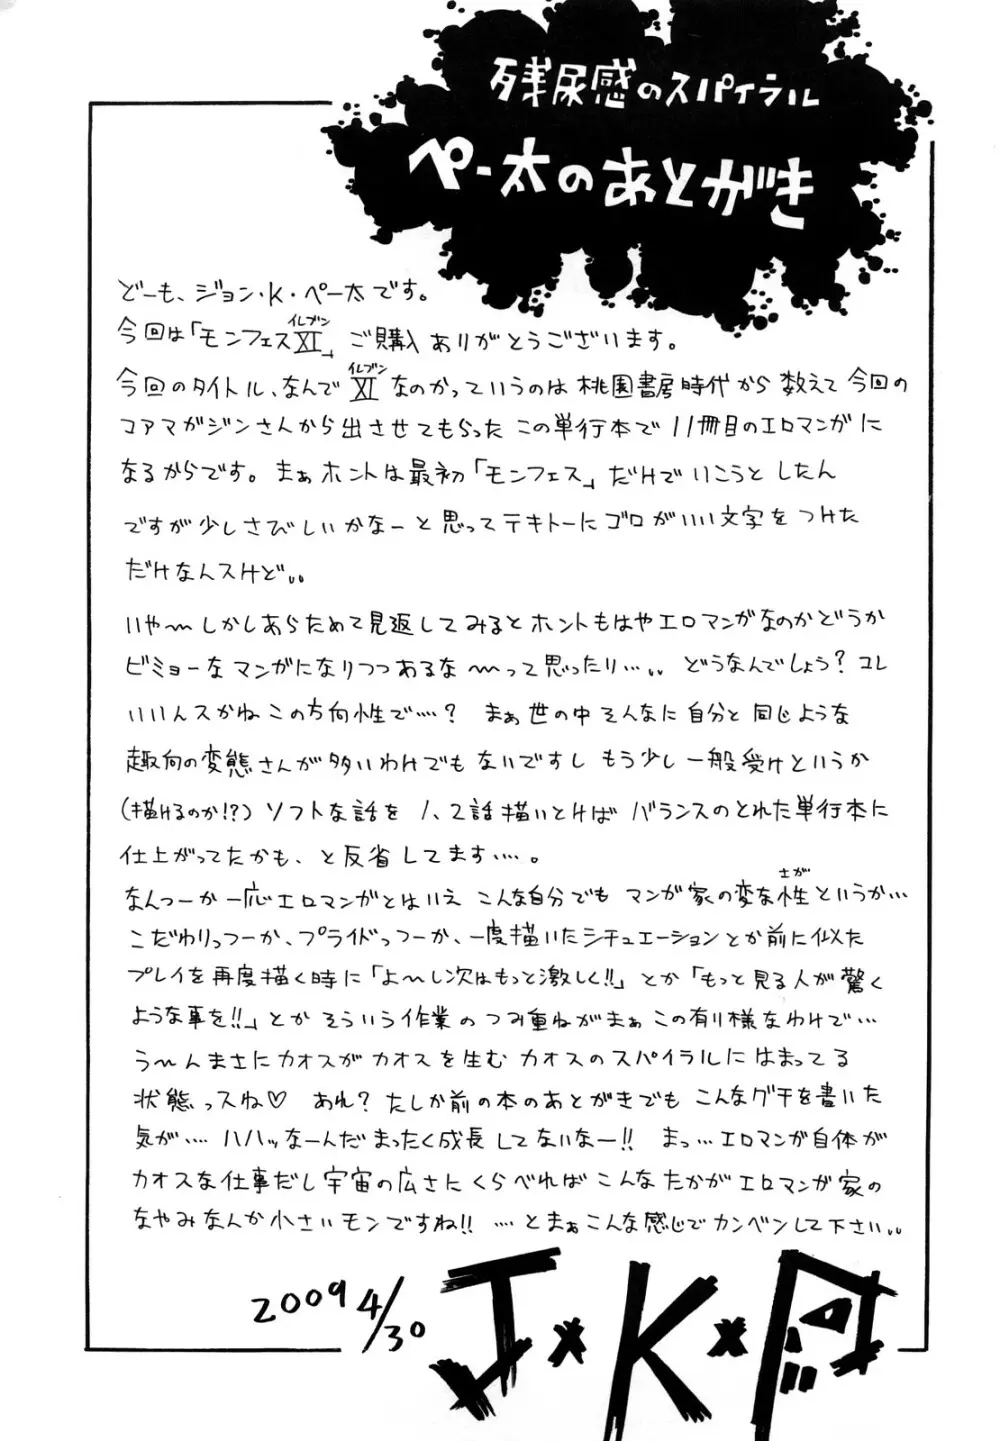 残尿感のスパイラル
ペー太のあとがき
どーも、ジョン・K・ペー太です。
今回は「モンフェスXI」ご購入ありがとうございます。
イレブン
今回のタイトル、なんでXIなのかっていうのは桃園書房時代から数えて今回の
イレブン
コアマガジンさんから出させてもらったこの単行本で11冊目のエロマンガに
なるからです。まぁホントは最初「モンフェス」だけでいこうとしたん
ですが少しさびしいかなーと思ってテキトーにゴロがいい文字をつけた
だけなんスけど。。
いや〜しかしあらためて見返してみるとホントもはやエロマンガなのかどうか
ビミョーなマンガになりつつあるな〜って思ったり…。。どうなんでしょう?コレ
いいんスかねこの方向性で…?まぁ世の中そんなに自分と同じような
趣向の変態さんが多いわけでもないですしもう少し一般受けというか
(描けるのか!?)ソフトな話を1、2話描いとけばバランスのとれた単行本に
仕上がってたかも、と反省してます…。
なんつーか一応エロマンガとはいえこんな自分でもマンガ家の変な性というか…
さが
こだわりっつーか、プライドっつーか、一度描いたシチュエーションとか前に似た
プレイを再度描く時に「よ〜し次はもっと激しく!!」とか「もっと見る人が驚く
ような事を!!」とかそういう作業のつみ重ねがまぁこの有り様なわけで…
う〜んまさにカオスがカオスを生むカオスのスパイラルにはまってる
状態っスね♡ あれ?たしか前の本のあとがきでもこんなグチを書いた
気が…ハハッなーんだまったく成長してないなー!! まっ…エロマンガ自体が
カオスな仕事だし宇宙の広さにくらべればこんなたかがエロマンガ家の
なやみなんか小さいモンですね!! …とまぁこんな感じでカンベンして下さい。。
2009 4/30
J×K×P